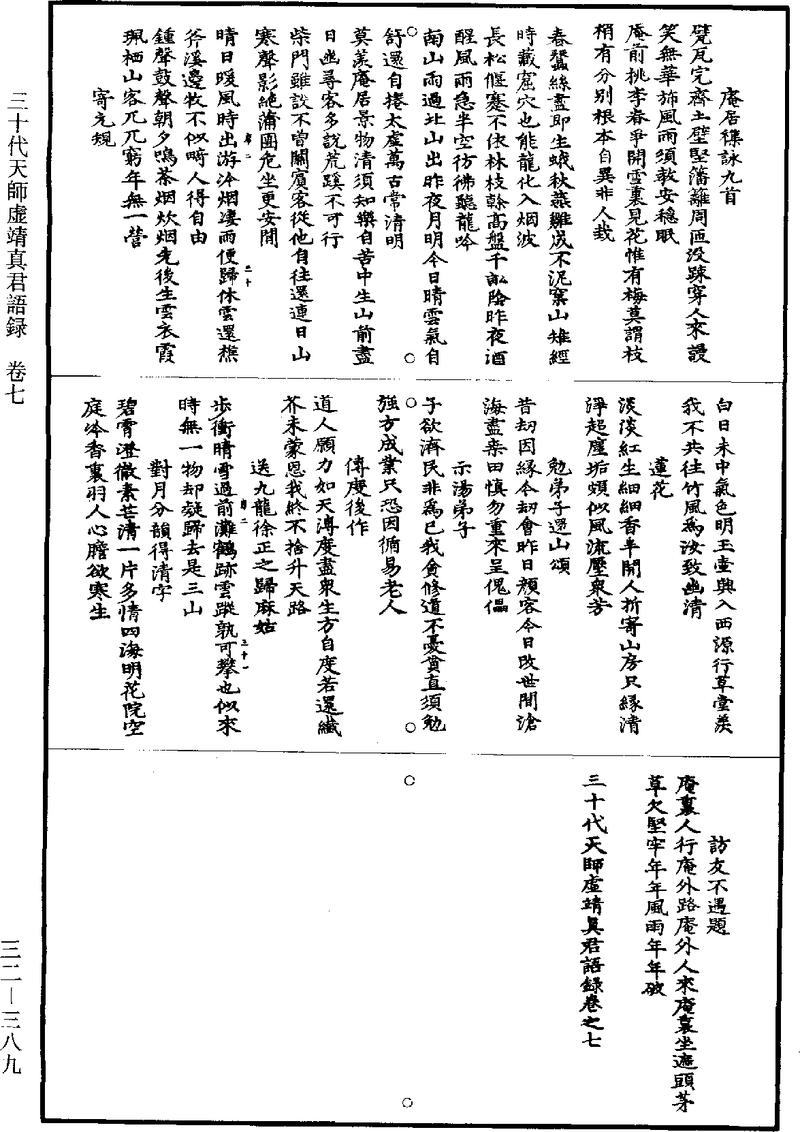 三十代天師虛靖真君語録　卷七
庵居襍詠九首
甓瓦完齊土壁堅藩籬周匝没踈穿人來謾
笑無華飾風雨須教安穩眠
庵前桃李春爭開雪裏見花惟有梅莫謂枝
梢有分别根本自異非人栽
春蠶絲盡即生蛾秋燕雛成不泥窠山雉經
時蔵窟穴也能龍化入烟波
長松偃蹇不依林枝榦高盤千畝陰昨夜酒
醒風雨急半空彷彿聽龍吟
南山雨過北山出昨夜月明今日晴雲氣自
舒還自捲太虛萬古常清明
莫羨庵居景物清須知樂自苦中生山前盡
日幽尋客多說荒蹊不可行
柴門雖設不曾關賓客從他自往還連日山
寒聲影絶蒲團危坐更安閒
晴日暖風時出游冷烟凄雨便歸休雲還樵
斧溪邊牧不似時人得自由
鍾聲鼓聲朝夕鳴茶烟炊烟先後生雲衣霞
珮栖山客兀兀窮年無一營
寄元規
白日未中氣色明玉壷興入西源行草堂羨
我不共往竹風爲汝致幽清
蓮花
淡淡紅生細細香半開人折寄山房只緣清
淨超塵垢頗似風流壓衆芳
勉弟子還山頌
昔刼因緣今刼會昨日顏容今日改世間滄
海盡桒田慎勿重來呈傀儡
示湯弟子
子欲濟民非爲已我貪修道不憂貧直須勉
強方成業只恐因循易老人
傳度後作
道人願力如天溥度盡衆生方自度若還纖
芥未蒙恩我終不捨升天路
送九龍徐正之歸麻姑
步衝晴雪過前灘鶴跡雲蹤孰可攀也似來
時無一物却凝歸去是三山
對月分韻得清字
碧霄澄徹素芒清一片多情四海明花院空
庭吟香裏羽人心膽欲寒生
訪友不遇題
庵裏人行庵外路庵外人來庵裏坐遮頭茅
草欠堅牢年年風雨年年破
三十代天師虛靖真君語錄卷之七
三二—三八九